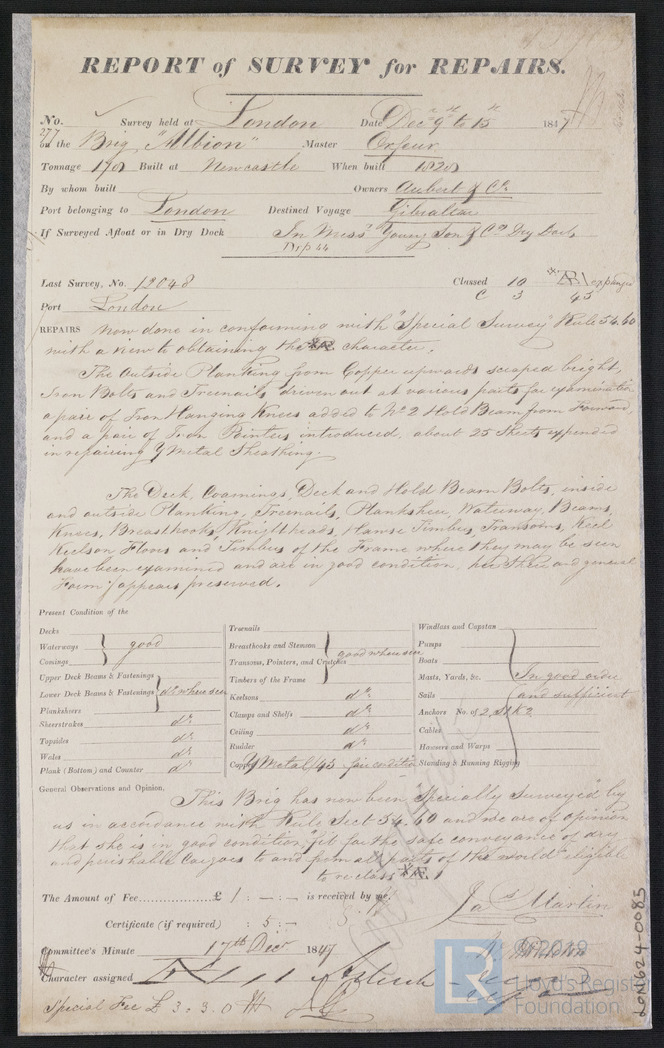 REPORT of SURVEY for REPAIRS.
No. 277 Survey held at London Date Decr 9th to 15th 1847
on the Brig, "Albion" Master Orfeur
Tonnage 170 Built at Newcastle When built 1828
By whom built Owners Aubert & Co.
Port belonging to London Destined Voyage Gibraltar
If Surveyed Afloat or in Dry Dock In Messrs Young Son & Co Dry Dock
Last Survey, No. 12048 Classed 10 Æ 1 expunged
C 3 45
Port London
REPAIRS now done in conforming with "Special Survey" Rule 54.60
with a view to obtaining the *Æ character.
The Outside Planking from Copper upwards scraped bright,
Iron Bolts and Treenails driven out at various parts for examination
a pair of Iron Hanging Knees added to No 2 Hold Beam from Forward,
and a pair of Iron Pointers introduced, about 25 Sheets expended
in repairing Y Metal Sheathing.
The Deck, Coamings, Deck and Hold Beam Bolts, inside
and outside Planking, Treenails, Planksheer, Waterway, Beams,
Knees, Breasthooks, Knightheads, Hawse Timbers, Transoms, Keel
Keelson Floors and Timbers of the Frame where they may be seen
have been examined and are in good condition, her Sheer and general
Form appears preserved.
Present Condition of the
Decks
Waterways
Comings
good
Upper Deck Beams & Fastenings
Lower Deck Beams & Fastenings
do where seen
Planksheers
Sheerstrakes do
Topsides do
Wales do
Plank (Bottom) and Counter do
Treenails
Breasthooks and Stemson
Transoms, Pointers, and Crutches
Timbers of the Frame
good when seen
Keelsons do
Clamps and Shelfs do
Ceiling do
Rudder do
Copper Y Metal 45 fair condition
Windlass and Capstan
Pumps
Boats
Masts, Yards, &c.
Sails
Anchors No. of 2
Cables
Hawsers and Warps
Standing & Running Rigging
In good order
and sufficient
General Observations and Opinion,
This Brig has now been "Specially Surveyed" by
us in accordance with Rule Sect 54.60 and we are of opinion
that she is in good condition, "fit for the safe conveyance of dry
and perishable Cargoes to and from all parts of the world" eligible
to re class *Æ 1
The Amount of Fee £ 1 : - : - is received by me,
Jas Martin
Certificate (if required) : 5 : -
Committee's Minute 17th Decr 1847
Character assigned
Special Fee £ 3.3.0
LON624-0085
LR
©2019
Lloyd's Register
Foundation